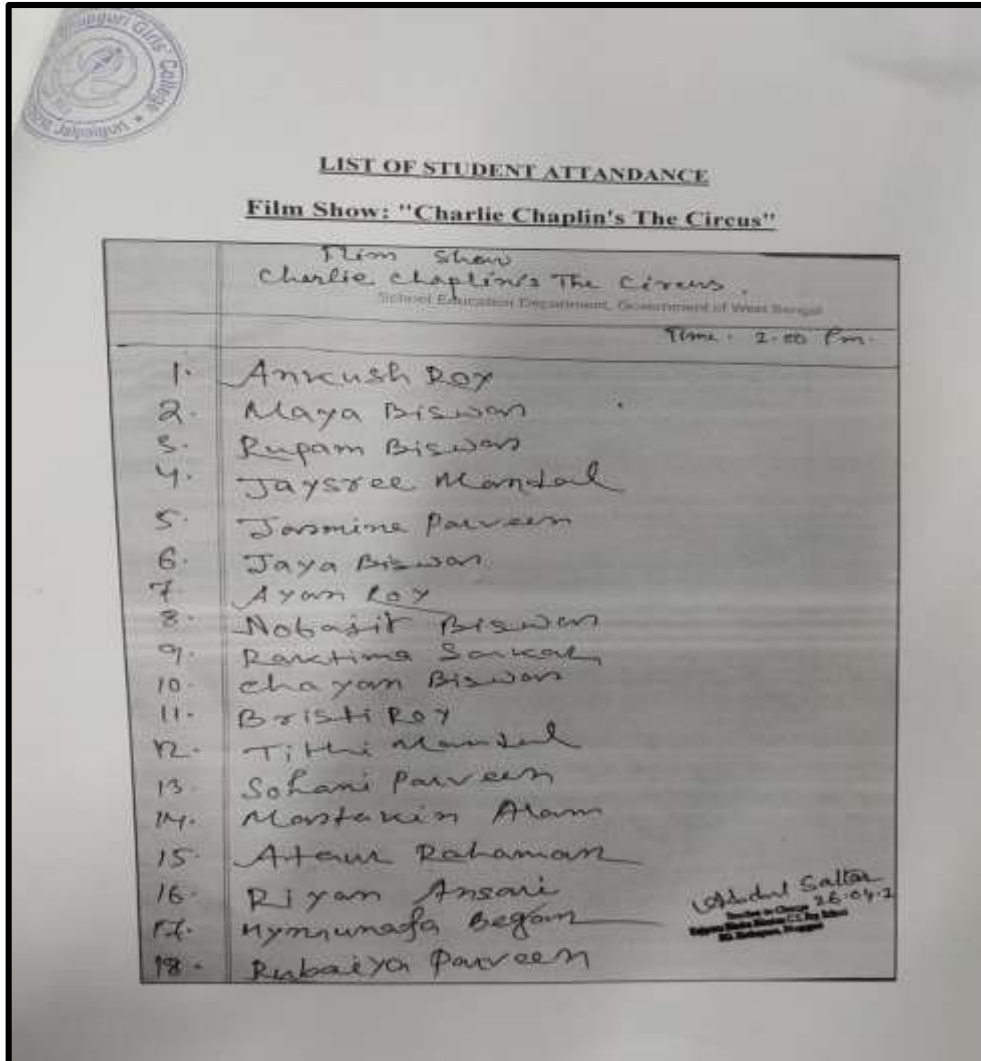 Girls' College
Jalpaiguri
LIST OF STUDENT ATTANDANCE
Film Show: "Charlie Chaplin's The Circus"
Flim Show
Charlie Chaplin's The Circus.
School Education Department, Government of West Bengal
Time. 2.00 Pm.
1. Ankush Roy
2. Maya Biswas
3. Rupam Biswas
4. Jaysree Mandal
5. Jasmine Parveen
6. Jaya Biswas
7. Ayan Roy
8. Nobajit Biswas
9. Raktima Sarkar
10. Chayan Biswas
11. Bristi Roy
12. Tithi Mandal
13. Sohani Parveen
14. Mostakin Alam
15. Ataur Rahaman
16. Riyan Ansari
17. Begam
18. Rubaiya Parveen
Abdul Sattar
26.04.2